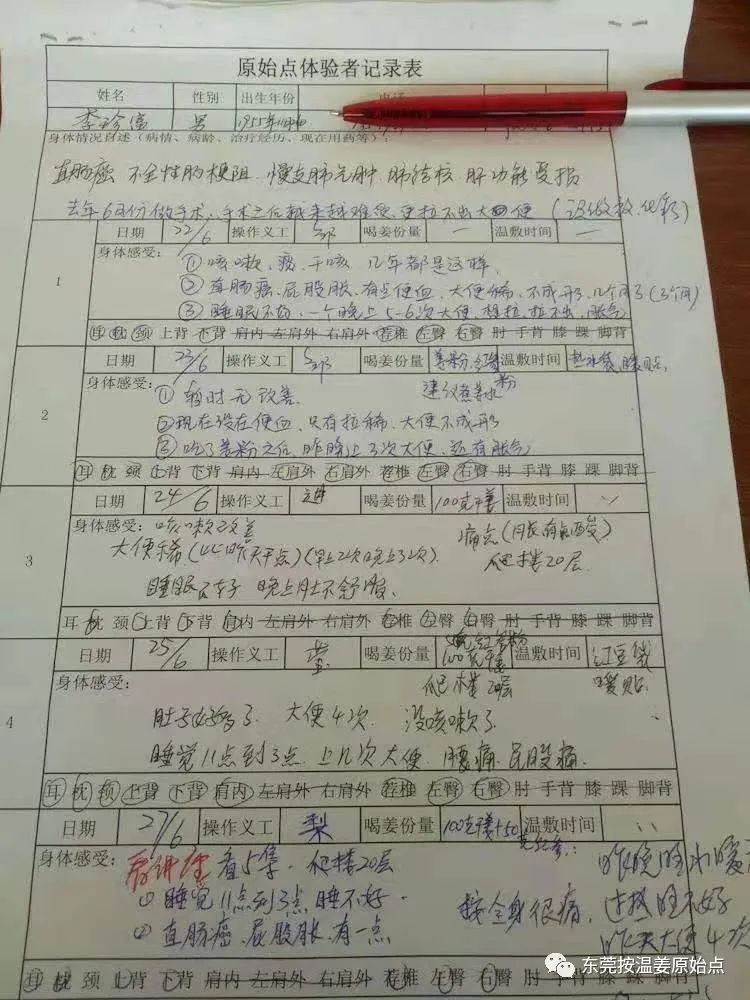 原始点体验者记录表
姓名 性别 出生年份
男 1955年
身体情况自述（病情、病龄、治疗经历、现在用药等）：
直肠癌 不全性肠梗阻、慢支肺气肿、肺结核 肝功能受损
去年6月份做手术，手术之后越来越难受，更拉不出大便（没做放、化疗）
日期 22/6 操作义工 邹 喝姜份量 一 温敷时间 一
1
身体感受：
①咳嗽、痰、干咳 几年都是这样
②直肠癌、屁股胀、有点便血、大便稀、不成形、几个月了（3个月）
③睡眠不好、一个晚上5-6次大便、想拉、拉不出、胀气
耳 枕 颈 上背 下背 肩内 左肩外 右肩外 荐椎 左臀 右臀 肘 手背 膝 踝 脚背
日期 23/6 操作义工 邹 喝姜份量 姜粉 温敷时间 热水袋 暖贴
2
身体感受：
①暂时无改善 建议煮姜粉
②现在没在便血，只有拉稀、大便不成形
③吃了姜粉之后，昨晚上3次大便，还有胀气
耳 枕 颈 上背 下背 肩内 左肩外 右肩外 荐椎 左臀 右臀 肘 手背 膝 踝 脚背
日期 24/6 操作义工 喝姜份量 100克干姜 温敷时间 ''
3
身体感受：咳嗽已改善
大便稀（比昨天干点）（早上2次晚上3次）
爬楼20层
睡眠不好 晚上肚不舒服
耳 枕 颈 上背 下背 肩内 左肩外 右肩外 荐椎 左臀 右臀 肘 手背 膝 踝 脚背
日期 25/6 操作义工 喝姜份量 100克干姜 温敷时间 红豆袋 暖贴
4
身体感受： 爬楼20层
肚子好多了 大便4次 没咳嗽了
睡觉11点到3点 上几次大便 腰痛 屁股痛
耳 枕 颈 上背 下背 肩内 左肩外 右肩外 荐椎 左臀 右臀 肘 手背 膝 踝 脚背
日期 27/6 操作义工 梨 喝姜份量 100克干姜+50 温敷时间 ''
身体感受： 看5集 爬楼20层
①睡觉11点到3点 睡不好
②直肠癌 屁股胀 有一点
按全身很痛
过热睡不好
昨天大便4次
耳 枕 颈 上背 下背 肩内 左肩外 右肩外 荐椎 左臀 右臀 肘 手背 膝 踝 脚背
东莞按温姜原始点